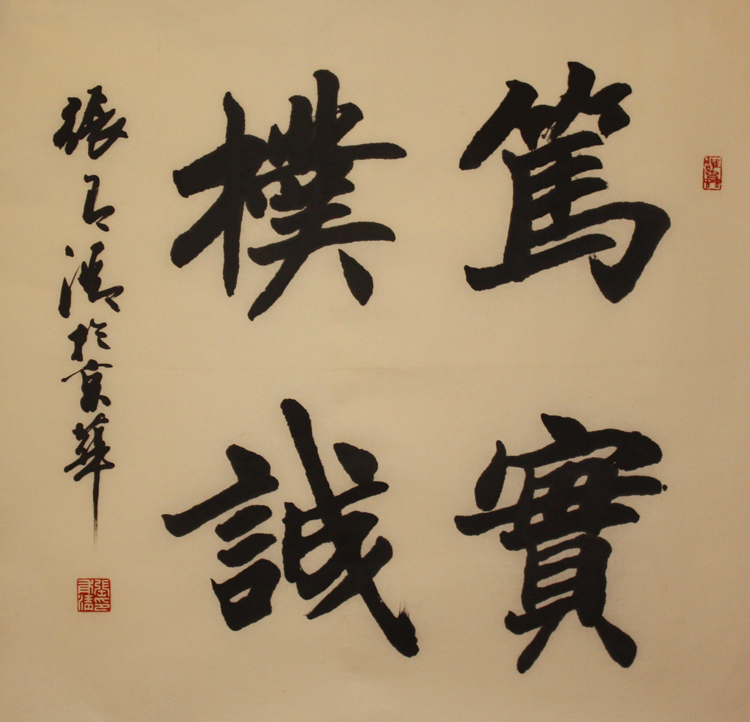 篤實
樸誠
張有清於京華